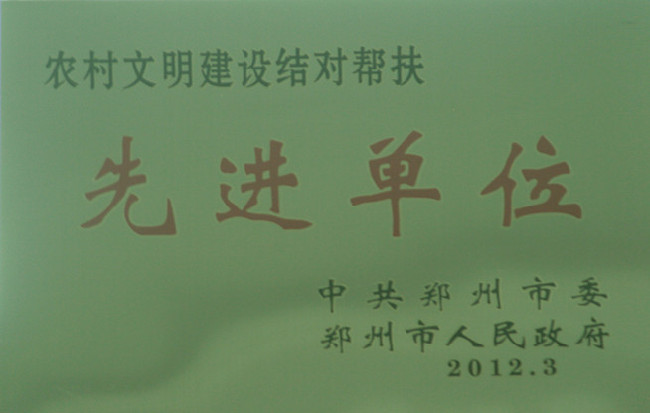 农村文明建设结对帮扶
先进单位
中共郑州市委
郑州市人民政府
2012.3